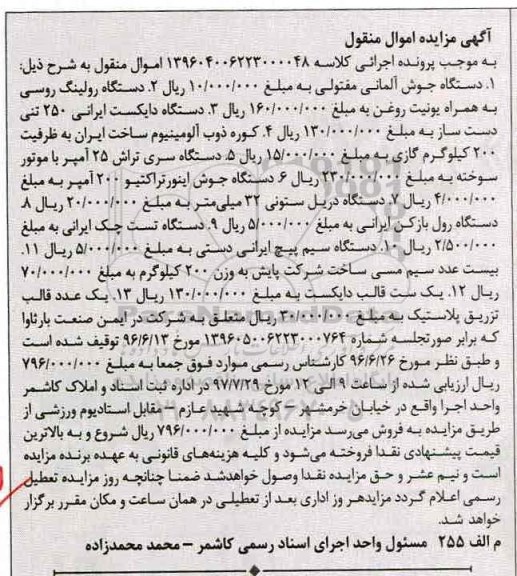 آگهی مزایده اموال منقول
به موجب پرونده اجرائی کلاسه ۱۳۹۶۰۴۰۰۶۲۲۳۰۰۰۰۴۸ اموال منقول به شرح ذیل:
۱. دستگاه جوش آلمانی مفتولی به مبلغ ۱۰/۰۰۰/۰۰۰ ریال ۲. دستگاه رولینگ روسی
به همراه یونیت روغن به مبلغ ۱۶۰/۰۰۰/۰۰۰ ریال ۳. دستگاه دایکست ایرانی ۲۵۰ تنی
دست ساز به مبلغ ۱۳۰/۰۰۰/۰۰۰ ریال ۴. کوره ذوب آلومینیوم ساخت ایران به ظرفیت
۲۰۰ کیلوگرم گازی به مبلغ ۱۵/۰۰۰/۰۰۰ ریال ۵. دستگاه سری تراش ۲۵ آمپر با موتور
سوخته به مبلغ ۲۳۰/۰۰۰/۰۰۰ ریال ۶. دستگاه جوش اینورتراکتیو ۲۰۰ آمپر به مبلغ
۴/۰۰۰/۰۰۰ ریال ۷. دستگاه دریل ستونی ۳۲ میلی‌متر به مبلغ ۲۰/۰۰۰/۰۰۰ ریال ۸.
دستگاه رول بازکن ایرانی به مبلغ ۵/۰۰۰/۰۰۰ ریال ۹. دستگاه تست چک ایرانی به مبلغ
۲/۵۰۰/۰۰۰ ریال ۱۰. دستگاه سیم پیچ ایرانی دستی به مبلغ ۵/۰۰۰/۰۰۰ ریال ۱۱.
بیست عدد سیم مسی ساخت شرکت پایش به وزن ۲۰۰ کیلوگرم به مبلغ ۷۰/۰۰۰/۰۰۰
ریال ۱۲. یک ست قالب دایکست به مبلغ ۱۳۰/۰۰۰/۰۰۰ ریال ۱۳. یک عدد قالب
تزریق پلاستیک به مبلغ ۲۰/۰۰۰/۰۰۰ ریال متعلق به شرکت در ایمن صنعت بارثاوا
که برابر صورتجلسه شماره ۱۳۹۶۰۵۰۰۶۲۲۳۰۰۰۷۶۴ مورخ ۹۶/۶/۱۳ توقیف شده است
و طبق نظر مورخ ۹۶/۶/۲۶ کارشناس رسمی موارد فوق جمعا به مبلغ ۷۹۶/۰۰۰/۰۰۰
ریال ارزیابی شده از ساعت ۹ الی ۱۲ مورخ ۹۷/۷/۲۹ در اداره ثبت اسناد و املاک کاشمر
واحد اجرا واقع در خیابان خرمشهر - کوچه شهید عازم - مقابل استادیوم ورزشی از
طریق مزایده به فروش می‌رسد مزایده از مبلغ ۷۹۶/۰۰۰/۰۰۰ ریال شروع و به بالاترین
قیمت پیشنهادی نقدا فروخته می‌شود و کلیه هزینه‌های قانونی به عهده برنده مزایده
است و نیم عشر و حق مزایده نقدا وصول خواهدشد ضمنا چنانچه روز مزایده تعطیل
رسمی اعلام گردد مزایدهر وز اداری بعد از تعطیلی در همان ساعت و مکان مقرر برگزار
خواهد شد.
م الف ۲۵۵ مسئول واحد اجرای اسناد رسمی کاشمر – محمد محمدزاده